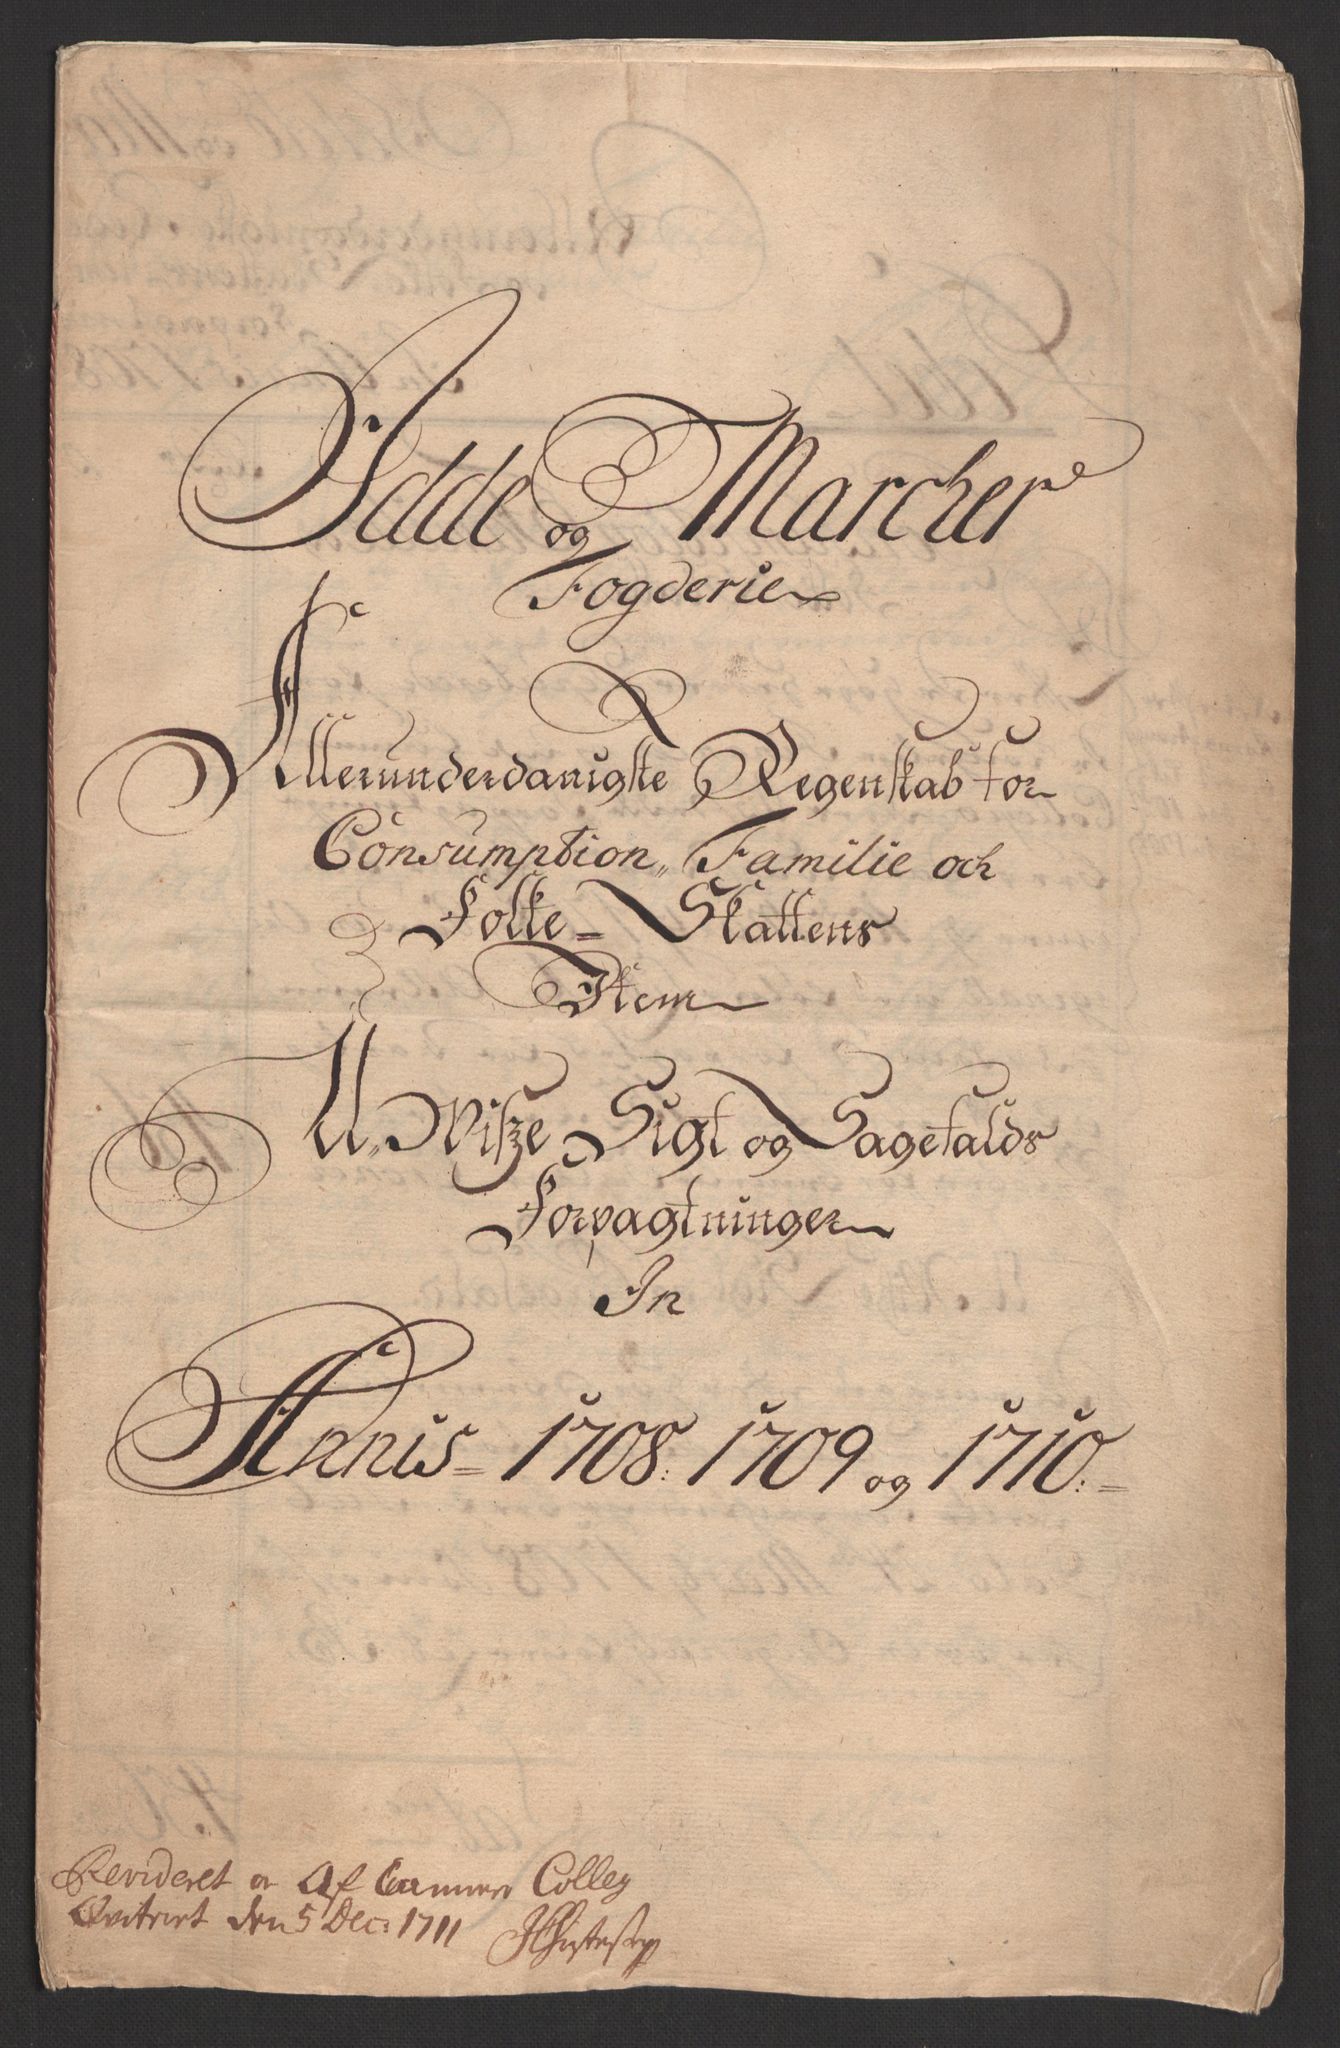 Idde og Marcher
Fogderie
Allerunderdanigste Regenskab for
Consumption„ Familie och
Folke= Skattens
Item
U-Wisze Sigt og Sagefalds
Forpagtninger
In
Annis= 1708: 1709 og 1710:=
Revideret Af Cammer Colleg
Qvitirt den 5 Dec: 1711